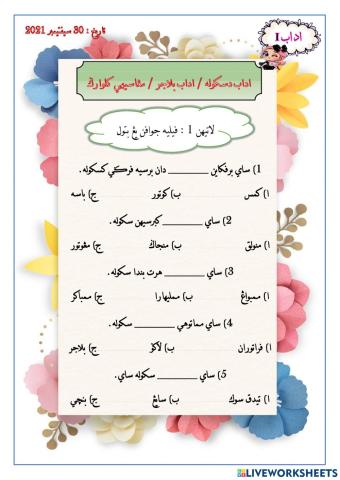 تاريخ : 30 سيڤتيمبر 2021
اداب 1
اداب دسكوله / اداب بلاجر / مڠاسيهي كلوارݢ
لاتيهن 1 : ڤيليه جواڤن يڠ بتول
1) ساي برڤكاين ________ دان برسيه ڤرڬي كسكوله.
ا) كمس ب) كوتور ج) باسه
2) ساي ________ كبرسيهن سكوله.
ا) منولق ب) منجاݢ ج) مڠوتور
3) ساي ________ هرت بندا سكوله.
ا) ممبواڠ ب) ممليهارا ج) ممباكر
4) ساي مماتوهي ________ سكوله.
ا) ڤراتوران ب) لاݢو ج) بلاجر
5) ساي ________ سكوله ساي.
ا) تيدق سوك ب) سايڠ ج) بنچي
LIVEWORKSHEETS